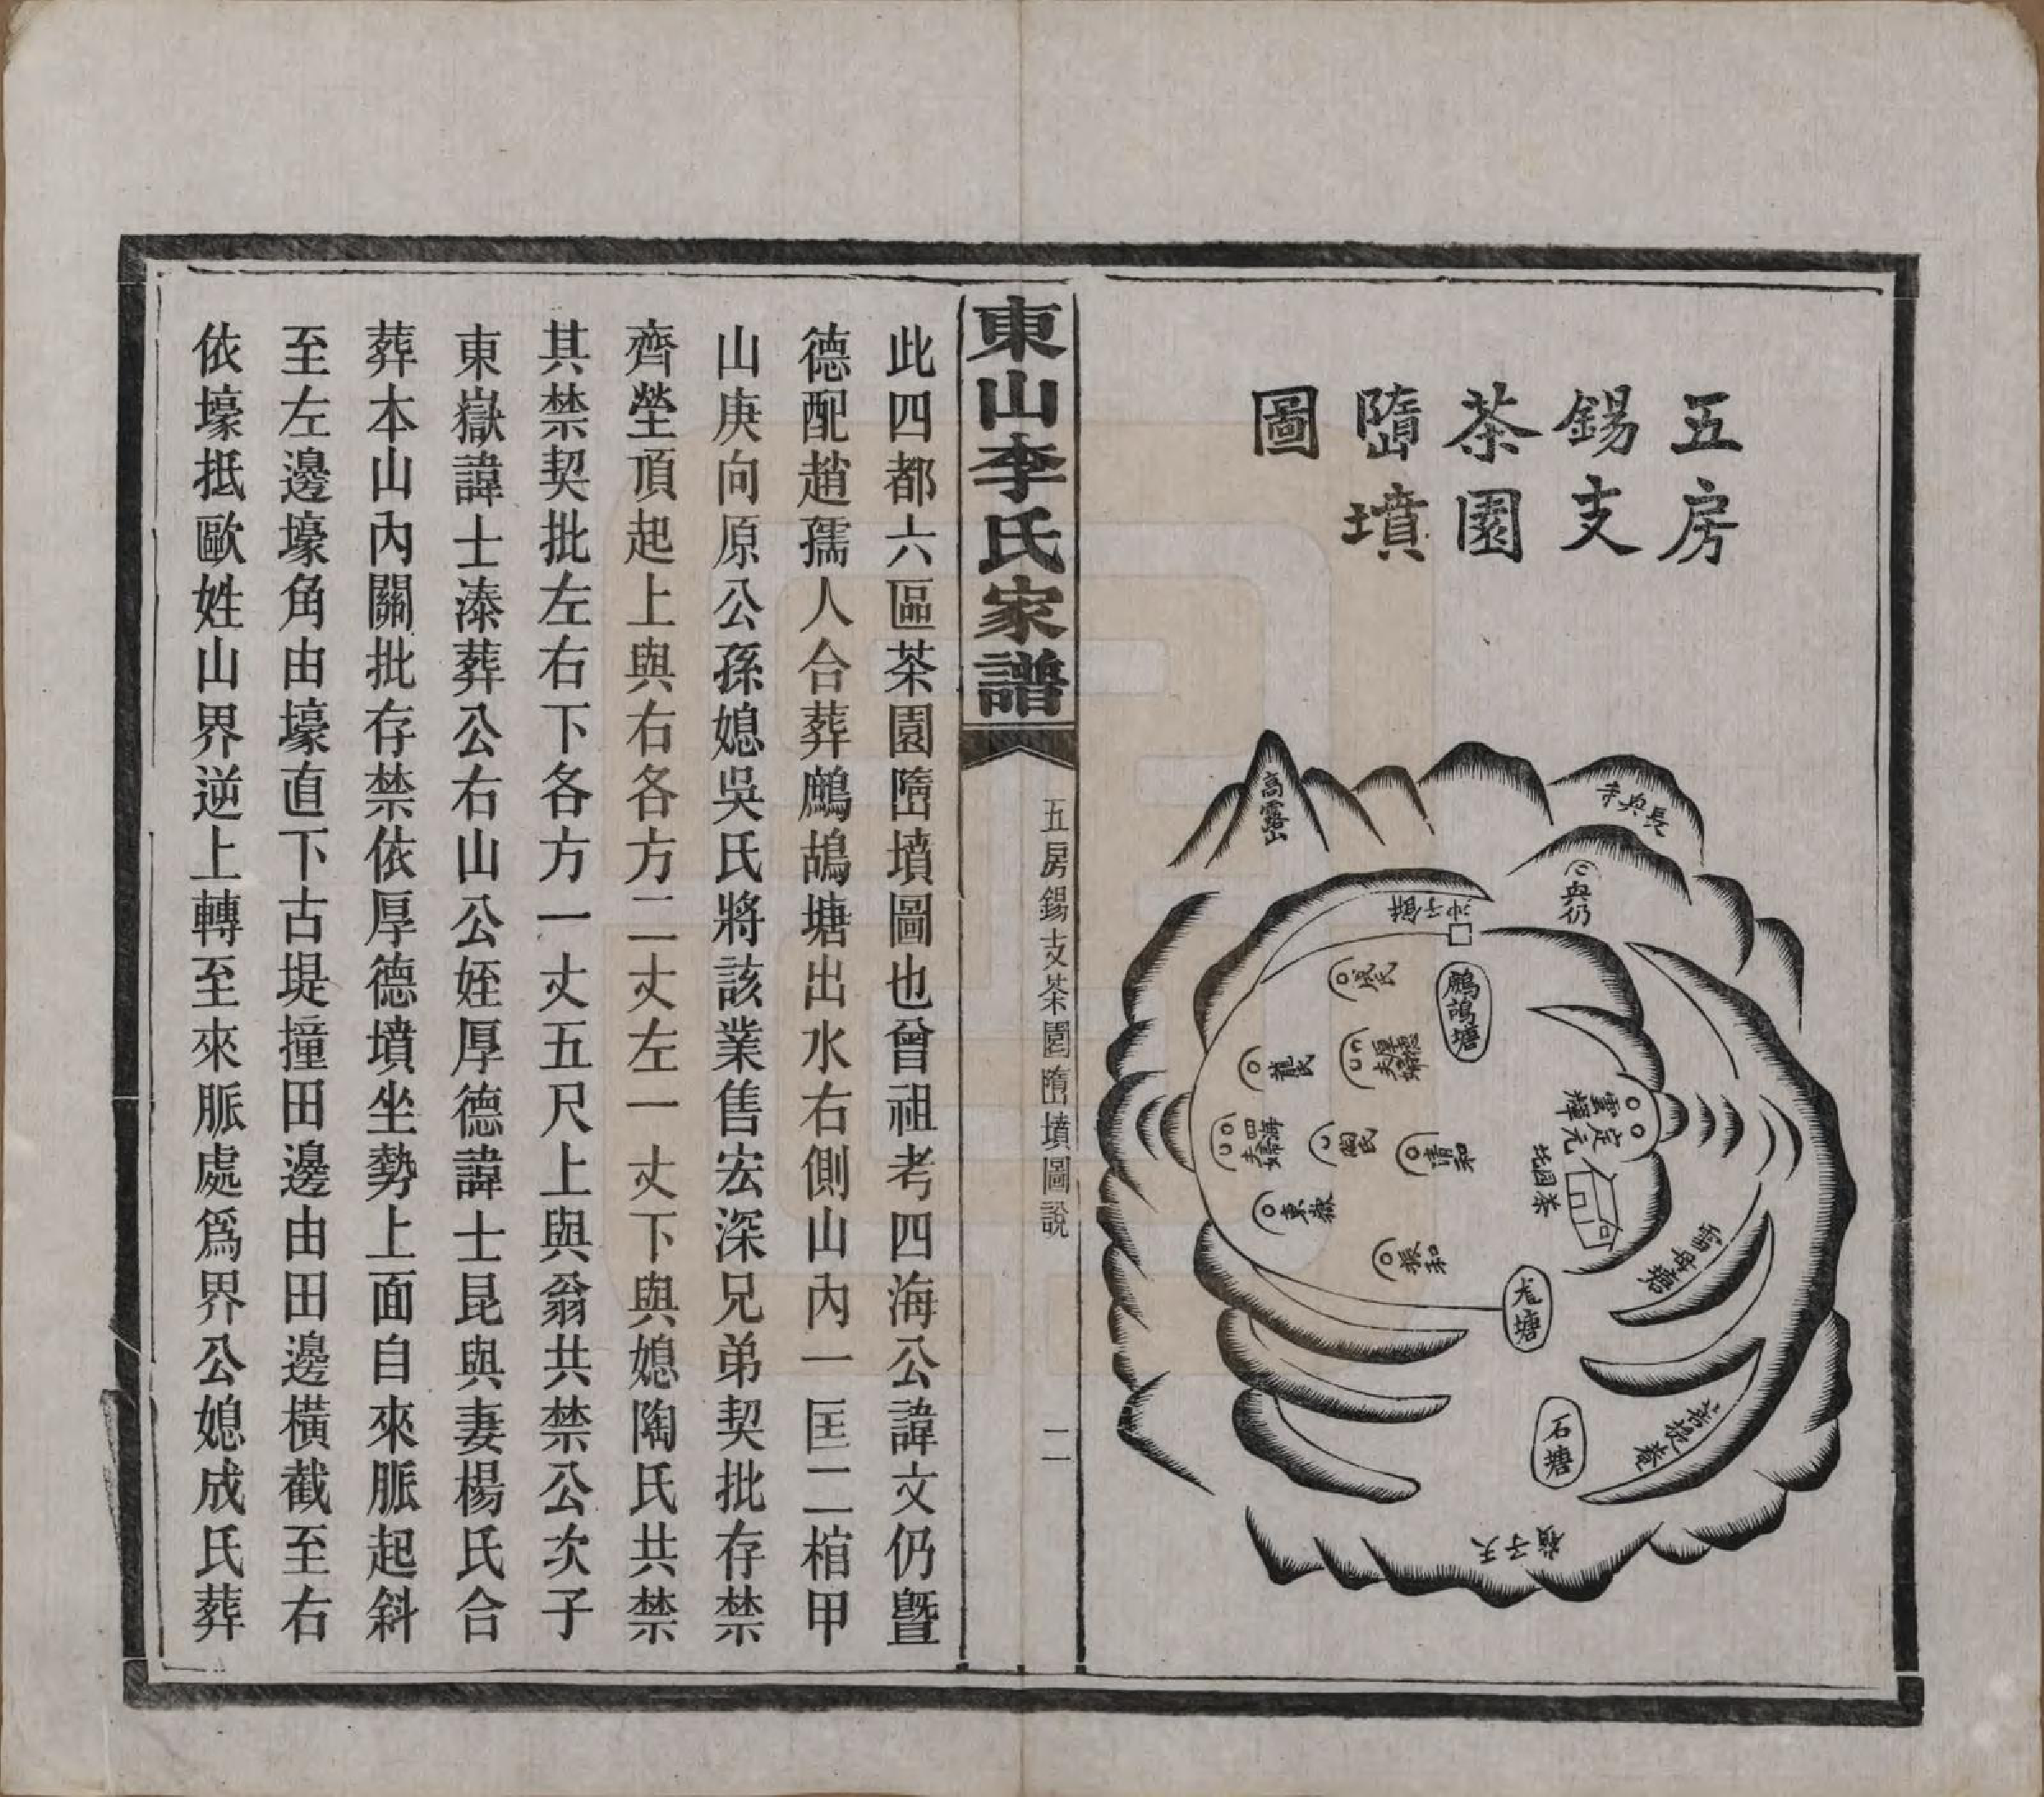 五房
錫支
茶園
墮墳
圖
高露山
長興寺
仍興
沖子餅
鷓鴣塘
張氏
厚德夫婦
龍氏
四海夫婦
陶氏
清和
東嶽
振和
雲輝
定元
茶園屯
雷母塘
尨塘
菩提菴
石塘
天子嶺
東山李氏家譜
五房錫支茶園墮墳圖說
二
此四都六區茶園墮墳圖也曾祖考四海公諱文仍曁
德配趙孺人合葬鷓鴣塘出水右側山內一匡二棺甲
山庚向原公孫媳吳氏將該業售宏深兄弟契批存禁
齊塋頂起上與右各方二丈左一丈下與媳陶氏共禁
其禁契批左右下各方一丈五尺上與翁共禁公次子
東嶽諱士溱葬公右山公姪厚德諱士昆與妻楊氏合
葬本山內關批存禁依厚德墳坐勢上面自來脈起斜
至左邊壕角由壕直下古堤撞田邊由田邊橫截至右
依壕抵歐姓山界逆上轉至來脈處爲界公媳成氏葬